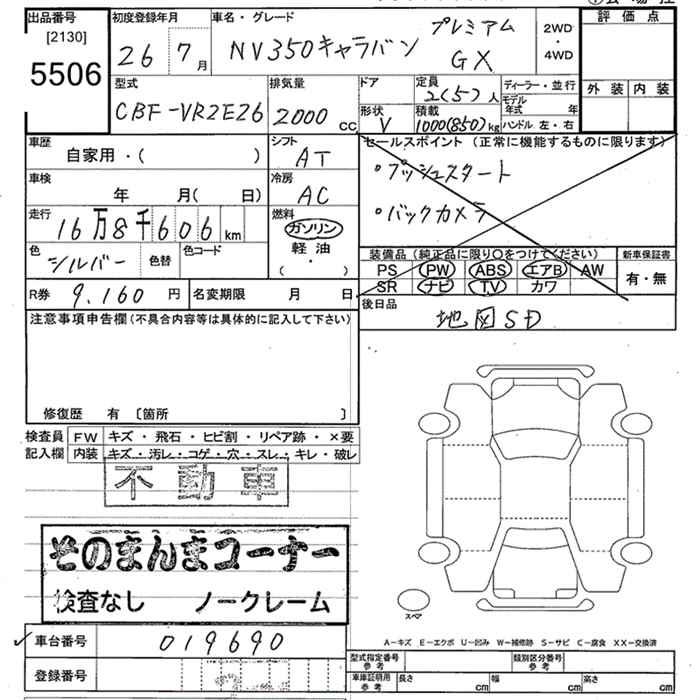 出品番号 [2130] 5506
初度登録年月 26 7月
車名・グレード NV350キャラバン プレミアムGX
2WD・4WD
評価点
外装 内装
型式 CBF-VR2E26
排気量 2000 cc
ドア
形状 V
定員 2(5)人
積載 1000(850)kg
ディーラー・並行
モデル年式 年
ハンドル 左・右
車歴 自家用・( )
シフト AT
セールスポイント (正常に機能するものに限ります)
・プッシュスタート
・バックカメラ
車検 年 月( 日)
冷房 AC
走行 16万8千606 km
燃料 ガソリン 軽油 ( ・ )
色 シルバー 色替 色コード
装備品 (純正品に限り○をつけてください)
PS PW ABS エアB AW
SR ナビ TV カワ
新車保証書 有・無
R券 9.160 円 名変期限 月 日
後日品 地図SD
注意事項申告欄 (不具合内容等は具体的に記入して下さい)
修復歴 有 〔箇所 〕
検査員記入欄
FW キズ・飛石・ヒビ割・リペア跡・×要
内装 キズ・汚レ・コゲ・穴・スレ・キレ・破レ
不動車
そのまんまコーナー
検査なし ノークレーム
スペア
A-キズ E-エクボ U-凹み W-補修跡 S-サビ C-腐食 XX-交換済
車台番号 019690
登録番号
型式指定番号 参考
類別区分番号 参考
車庫証明用 参考 長さ cm 幅 cm 高さ cm